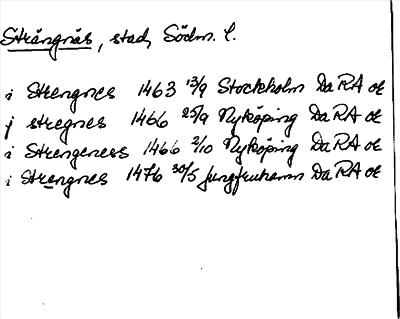 Strängnäs, stad, Södm. l.
i Strengnes 1463 13/9 Stockholm Da RA or
j stregnes 1466 25/9 Nyköping Da RA or
i Strengeness 1466 2/10 Nyköping Da RA or
i Strengnes 1476 30/5 Jungfruhamn Da RA or